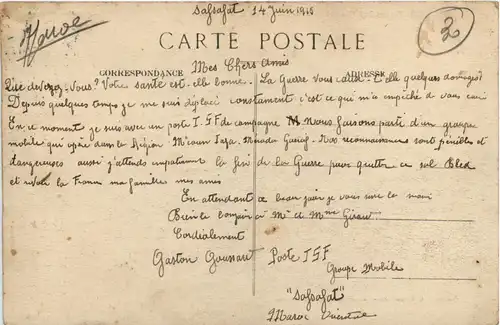 Safsafat 14 Juin 1915
CARTE POSTALE
CORRESPONDANCE Mes Chers Amis ADRESSE
Que devez-Vous? Votre santé est elle bonne. La Guerre vous cause t'elle quelques dommages?
Depuis quelques temps je me suis déplacé constament c'est ce qui m'a empêché de vous
En ce moment je suis avec un poste T.S.F de campagne Nous faisons parti d'un groupe
mobile qui opère dans la Région. M'çoun Taza. Nos reconnaissances sont pénibles et
dangereuses aussi j'attends impatiament la fin de la Guerre pour quitter ce sol Bled
et revoir la France ma famille mes amis
En attendant ce beau jour je vous serre la main
Bien le bonjour à Mr et Mme Giraud
Cordialement
Gaston Poste T.S.F
Groupe Mobile
"Safsafat"
Maroc Oriental